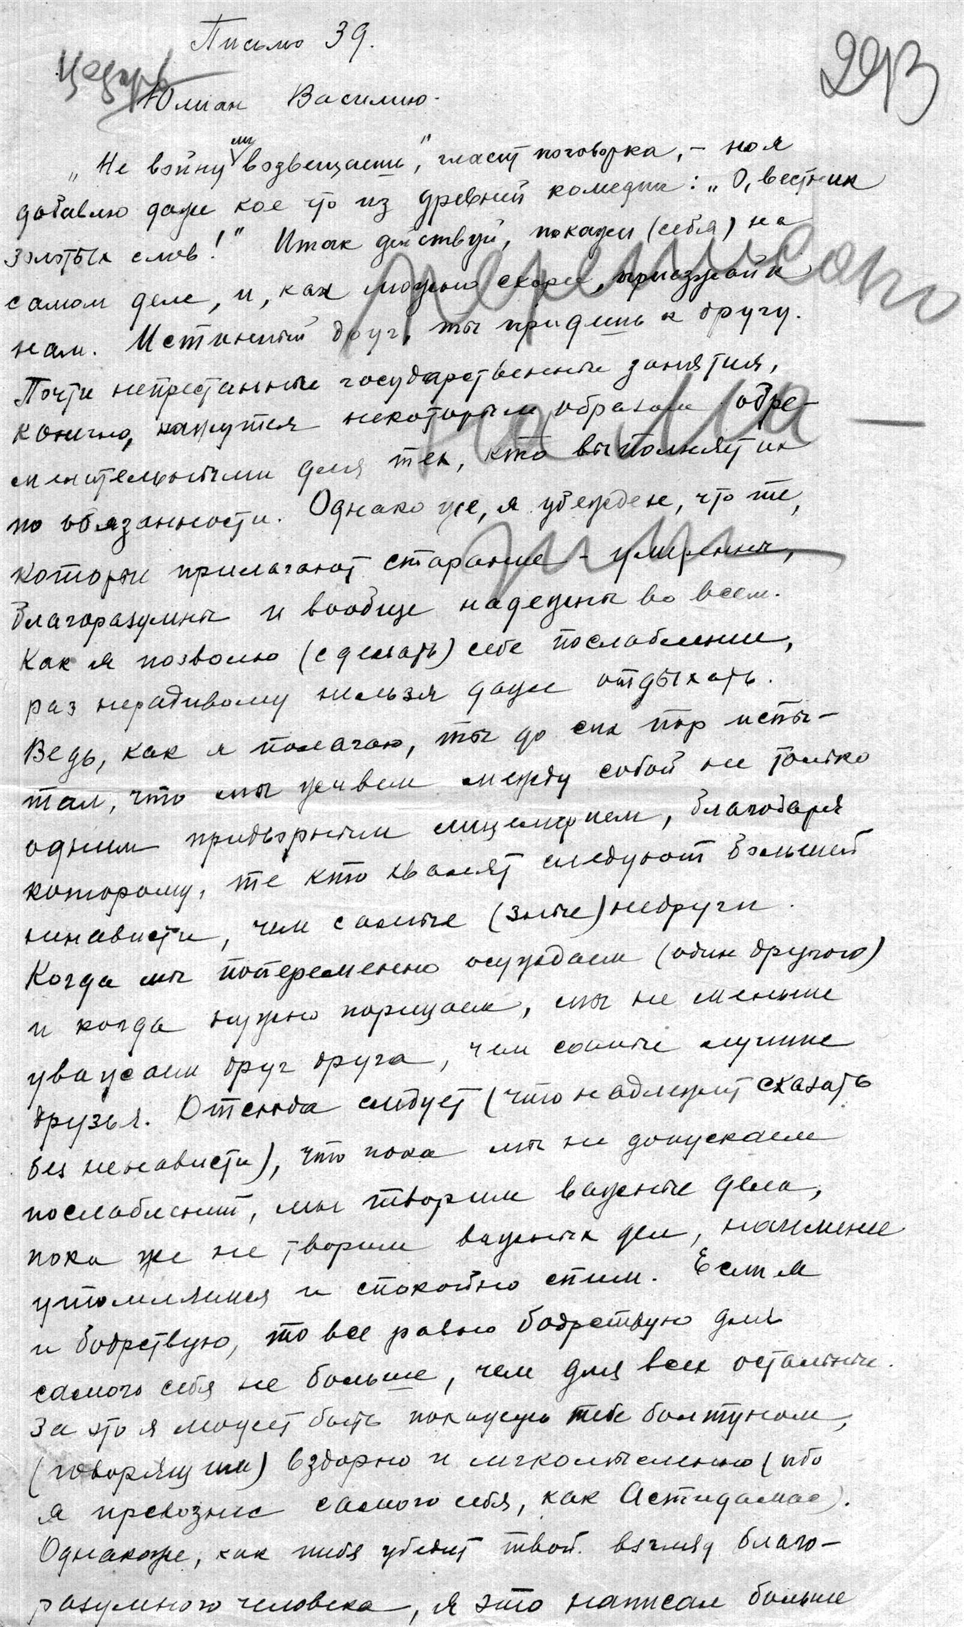 Письмо 39.
293
Цезарь
Юлиан Василию.
„Не войну ты возвещаешь“, гласит поговорка, – но я
добавлю даже кое что из древней комедии: „О, вестник
золотых слов!“ Итак действуй, покажи (себя) на
самом деле, и, как можно скорее, приезжай к
нам. Истинный друг, ты придешь к другу.
Почти непрестанные государственные занятия,
конечно, кажутся некоторым образом обре-
менительными для тех, кто выполняет их
по обязанности. Однако же, я убежден, что те,
которые прилагают старание – умеренны,
благоразумны и вообще надежны во всем.
Как я позволю (сделать) себе послабление,
раз нерадивому нельзя даже отдыхать.
Ведь, как я полагаю, ты до сих пор испы-
тал, что мы живем между собой не только
одним придворным лицемерием, благодаря
которому, те кто хвалят следуют большей
ненависти, чем самые (злые) недруги.
Когда мы попеременно осуждаем (один другого)
и когда нужно порицаем, мы не меньше
уважаем друг друга, чем самые лучшие
друзья. Отсюда следует (что надлежит сказать
без ненависти), что пока мы не допускаем
послаблений, мы творим важные дела,
пока же не творим важных дел, наименее
утомляемся и спокойно спим. Если я
и бодрствую, то все равно бодрствую для
самого себя не больше, чем для всех остальных.
За это я может быть покажусь тебе болтуном,
(говорящим) вздорно и легкомысленно (ибо
я превознес самого себя, как Астидамас).
Однакоже, как тебя убедит твой взгляд благо-
разумного человека, я это написал больше
Переписано
на ма –
шинке